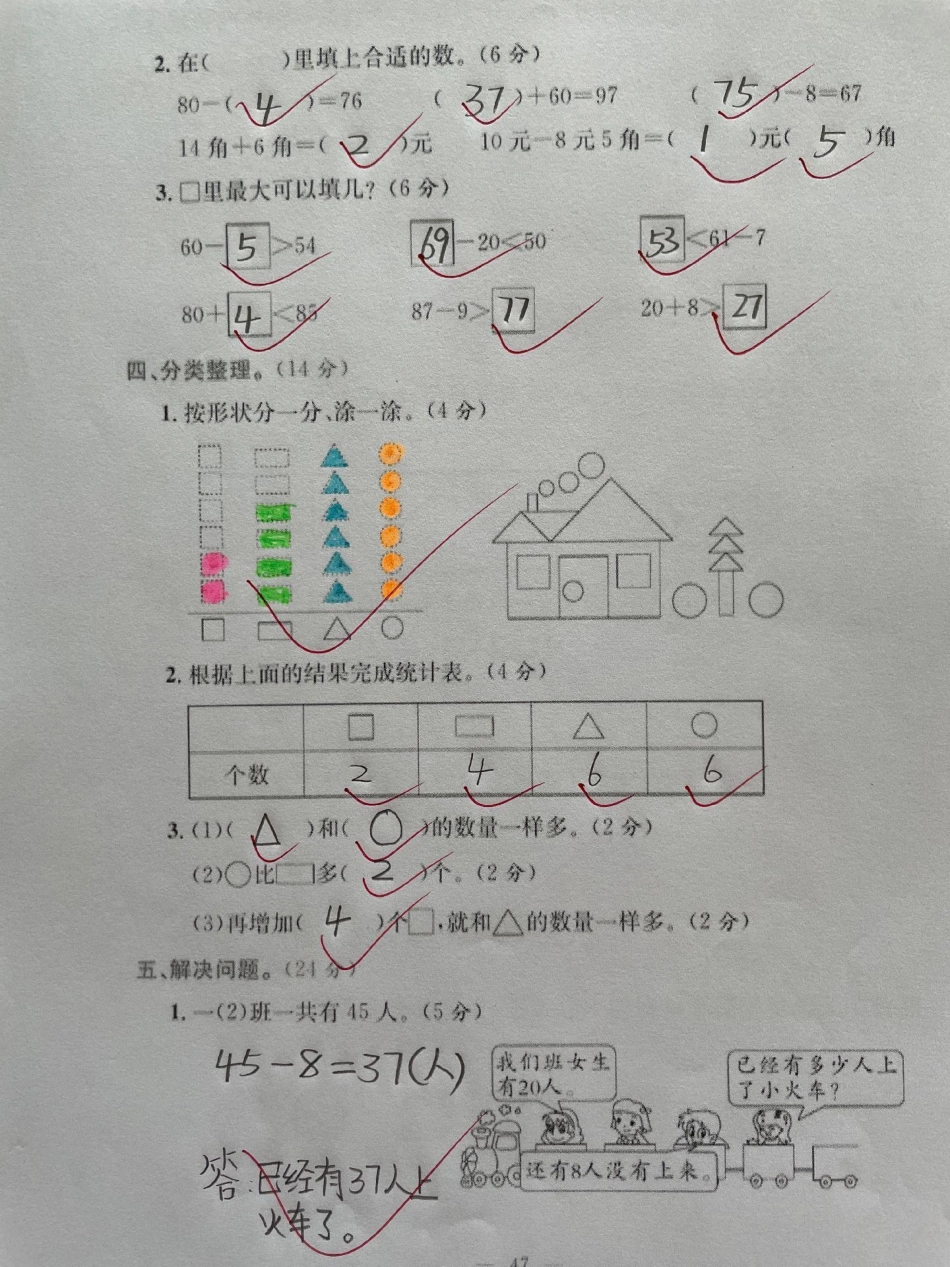 2. 在(　　)里填上合适的数。(6分)
80-( 4 )=76　( 37 )+60=97　( 75 )-8=67
14角+6角=( 2 )元　10元-8元5角=( 1 )元( 5 )角
3. □里最大可以填几?(6分)
60-5>54　69-20<50　53<61-7
80+4<85　87-9>77　20+8>27
四、分类整理。(14分)
1. 按形状分一分、涂一涂。(4分)
2. 根据上面的结果完成统计表。(4分)
□　▭　△　○
个数　2　4　6　6
3. (1)( △ )和( ○ )的数量一样多。(2分)
(2)○比▭多( 2 )个。(2分)
(3)再增加( 4 )个□,就和△的数量一样多。(2分)
五、解决问题。(24分)
1. 一(2)班一共有45人。(5分)
45-8=37(人)
我们班女生
有20人。
已经有多少人上
了小火车?
还有8人没有上来。
答:已经有37人上
火车了。
— 47 —